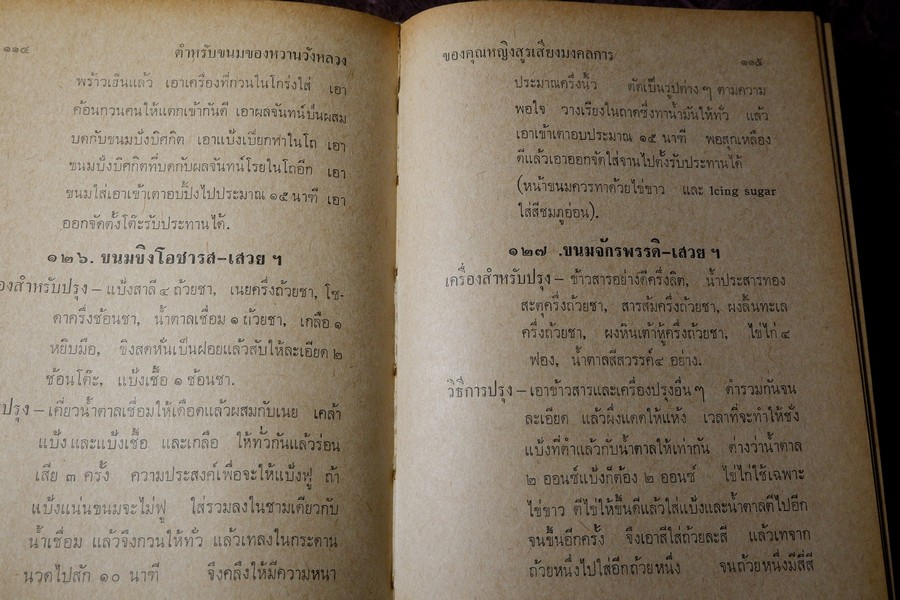 ๑๑๔ ตำหรับขนมของหวานวังหลวง
พร้าวเย็นแล้ว เอาเครื่องที่กวนในโกร่งใส่ เอา
ค้อนกวนคนให้แตกเข้ากันดี เอาผลจันทน์ป่นผสม
บดกับขนมบั่งบิศกิต เอาแป้งเบียกทำในโถ เอา
ขนมบั่งบิศกิตที่บดกับผลจันทน์โรยในโถอีก เอา
ขนมใส่เอาเข้าเตาอบปิ้งไปประมาณ ๑๕ นาที เอา
ออกจัดตั้งโต๊ะรับประทานได้.
๑๒๖. ขนมขิงโอชารส-เสวย ฯ
องสำหรับปรุง – แป้งสาลี ๔ ถ้วยชา, เนยครึ่งถ้วยชา, โซ-
ดาครึ่งช้อนชา, น้ำตาลเชื่อม ๑ ถ้วยชา, เกลือ ๑
หยิบมือ, ขิงสดหั่นเป็นฝอยแล้วสับให้ละเอียด ๒
ช้อนโต๊ะ, แป้งเชื้อ ๑ ช้อนชา.
ปรุง – เคี่ยวน้ำตาลเชื่อมให้เดือดแล้วผสมกับเนย เคล้า
แป้ง และแป้งเชื้อ และเกลือ ให้ทั่วกันแล้วร่อน
เสีย ๓ ครั้ง ความประสงค์เพื่อจะให้แป้งฟู ถ้า
แป้งแน่นขนมจะไม่ฟู ใส่รวมลงในชามเดียวกับ
น้ำเชื่อม แล้วจึงกวนให้ทั่ว แล้วเทลงในกระดาน
นวดไปสัก ๑๐ นาที จึงคลึงให้มีความหนา
ของคุณหญิงสูรเสียงมงคลการ ๑๑๕
ประมาณครึ่งนิ้ว ตัดเป็นรูปต่าง ๆ ตามความ
พอใจ วางเรียงในถาดซึ่งทาน้ำมันให้ทั่ว แล้ว
เอาเข้าเตาอบประมาณ ๑๕ นาที พอสุกเหลือง
ดีแล้วเอาออกจัดใส่จานไปตั้งรับประทานได้
(หน้าขนมควรทาด้วยไข่ขาว และ Icing sugar
ใส่สีชมภูอ่อน).
๑๒๗ .ขนมจักรพรรดิ-เสวย ฯ
เครื่องสำหรับปรุง – ข้าวสารอย่างดีครึ่งลิต, น้ำประสารทอง
สะตุครึ่งถ้วยชา, สารส้มครึ่งถ้วยชา, ผงลิ้นทะเล
ครึ่งถ้วยชา, ผงหินเต้าหู้ครึ่งถ้วยชา, ไข่ไก่ ๔
ฟอง, น้ำตาลสีสวรรค์๔ อย่าง.
วิธีการปรุง – เอาข้าวสารและเครื่องปรุงอื่น ๆ ตำรวมกันจน
ละเอียด แล้วผึ่งแดดให้แห้ง เวลาที่จะทำให้ชั่ง
แป้งที่ตำแล้วกับน้ำตาลให้เท่ากัน ต่างว่าน้ำตาล
๒ ออนซ์แป้งก็ต้อง ๒ ออนซ์ ไข่ไก่ใช้เฉพาะ
ไข่ขาว ตีไข่ให้ขึ้นดีแล้วใส่แป้งและน้ำตาลตีไปอีก
จนขึ้นอีกครั้ง จึงเอาสีใส่ถ้วยละสี แล้วเทจาก
ถ้วยหนึ่งไปใส่อีกถ้วยหนึ่ง จนถ้วยหนึ่งมีสี่สี